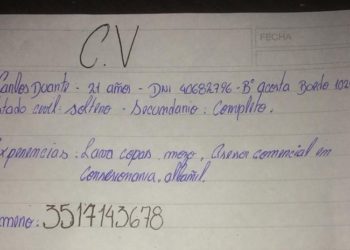 C.V
FECHA
Carlos Duarte - 21 años - DNI 40682796 - B° acosta Bordo 102
Estado civil - soltero - Secundario: Completo.
Experiencias: Lava copas, mozo, Asesor comercial en
consesionaria, albañil.
3517143678